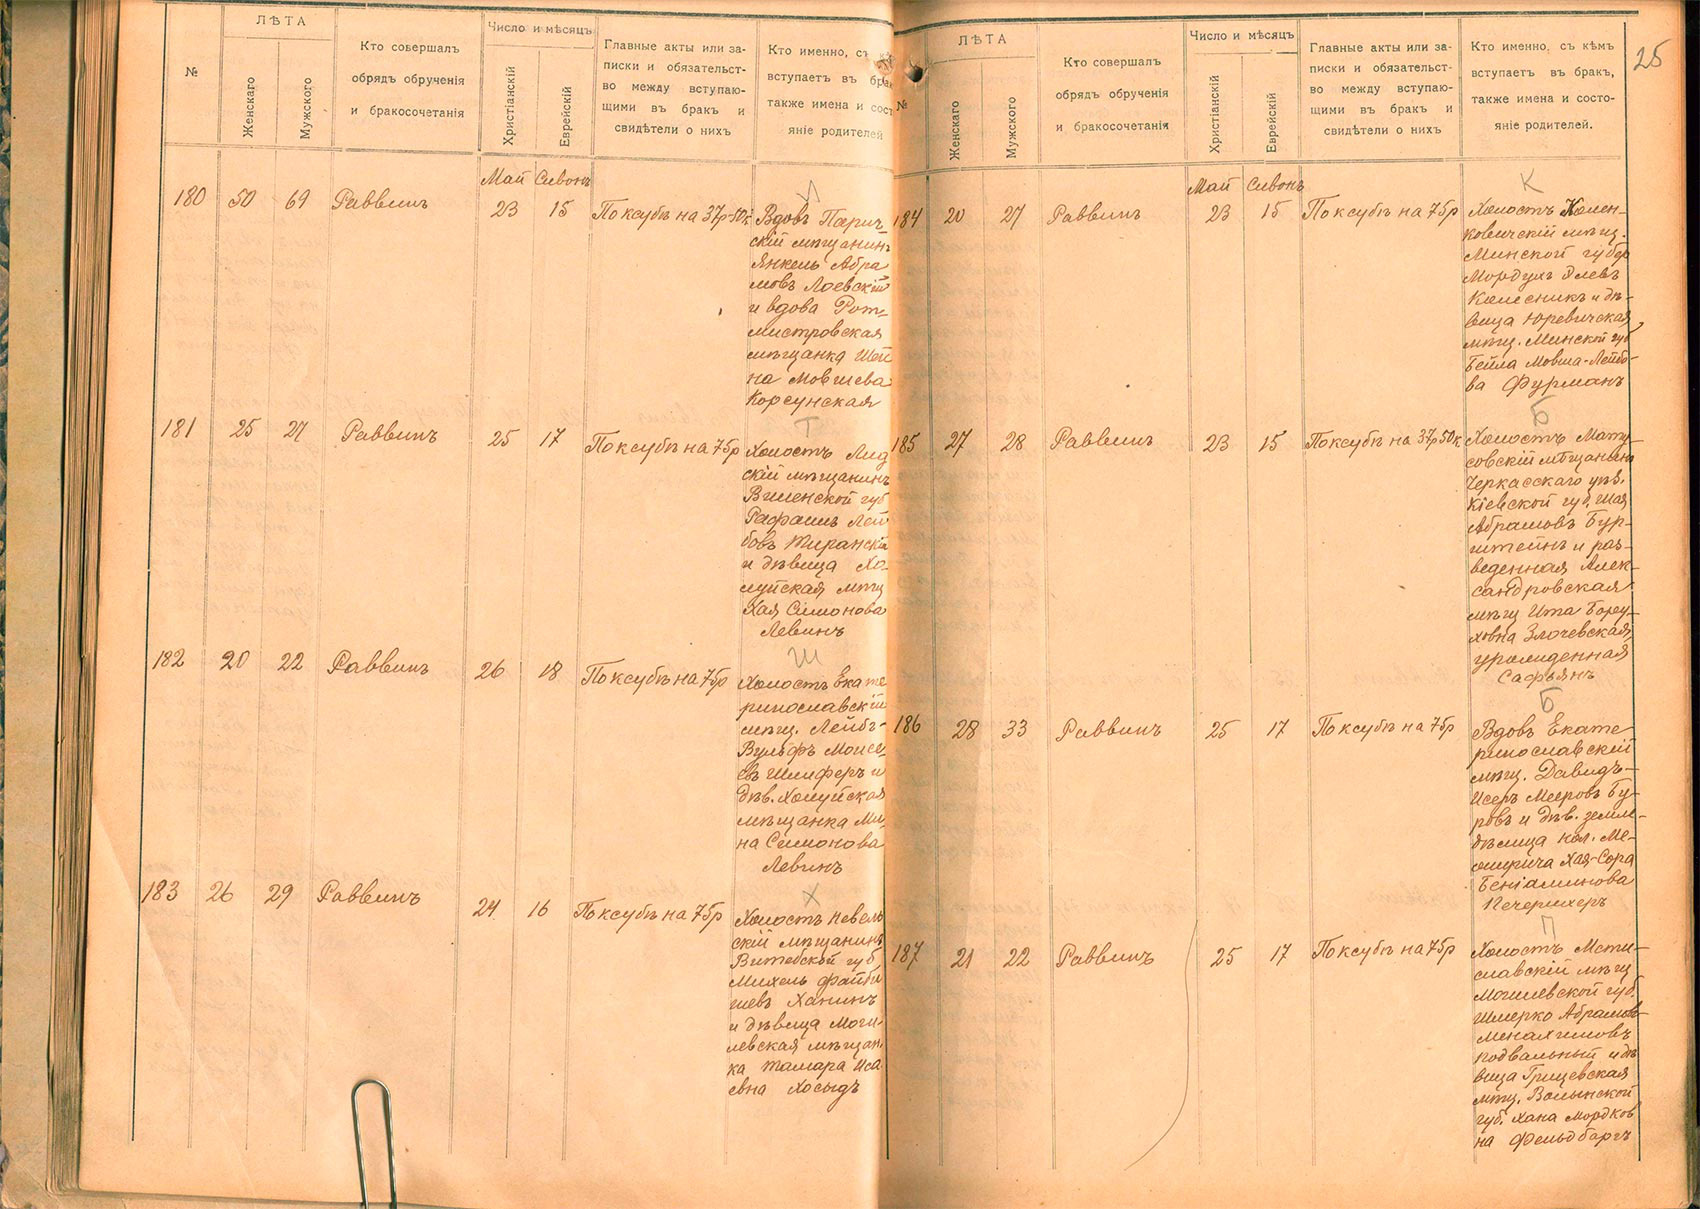 25
№
ЛѢТА
Женскаго
Мужского
Кто совершалъ
обрядъ обрученія
и бракосочетанія
Число и мѣсяцъ
Христіанскій
Еврейскій
Главные акты или за-
писки и обязательст-
во между вступаю-
щими въ бракъ и
свидѣтели о нихъ
Кто именно, съ
вступаетъ въ брак
также имена и сост
яніе родителей
Май Сивонъ
180 50 69 Раввинъ 23 15 По ксубѣ на 37р 50к
И
Вдовъ Парич-
скій мѣщанинъ
Янкель Абра
мовъ Лоевскій
и вдова Рот-
мистровская
мѣщанка Шей
на Мовшева
Корсунская
181 25 27 Раввинъ 25 17 По ксубѣ на 75р
Т
Холостъ Лид
скій мѣщанинъ
Виленской губ
Рафаилъ Лей
бовъ Жиранскій
и дѣвица Хо-
луйская мѣщ
Хая Симонова
Левинъ
182 20 22 Раввинъ 26 18 По ксубѣ на 75р
Ш
Холостъ Екате
ринославскій
мѣщ. Лейбъ-
Вульфъ Моисе-
евъ Шлиферъ и
дѣв. Холуйская
мѣщанка Ми-
на Симонова
Левинъ
183 26 29 Раввинъ 24 16 По ксубѣ на 75р
Х
Холостъ Невель
скій мѣщанинъ
Витебской губ
Михель Файби
шевъ Ханинъ
и дѣвица Моги-
левская мѣщан-
ка Тамара Иса
евна Хосыдъ
№
ЛѢТА
Женскаго
Мужского
Кто совершалъ
обрядъ обрученія
и бракосочетанія
Число и мѣсяцъ
Христіанскій
Еврейскій
Главные акты или за-
писки и обязательст-
во между вступаю-
щими въ бракъ и
свидѣтели о нихъ
Кто именно, съ кѣмъ
вступаетъ въ бракъ,
также имена и состо-
яніе родителей.
Май Сивонъ
184 20 27 Раввинъ 23 15 По ксубѣ на 75р
К
Холостъ Кален-
ковичскій мѣщ.
Минской губер
Мордухъ
Колесникъ и дѣ-
вица Юревичская
мѣщ. Минской губ
Бейла Мовша-Лейбо-
ва Фурманъ
185 27 28 Раввинъ 23 15 По ксубѣ на 37р 50к
Б
Холостъ Мату-
совскій мѣщанинъ
Черкасскаго уѣз.
Кіевской губ.
Абрамовъ Бур-
штейнъ и раз-
веденная Алек-
сандровская
мѣщ Ита Бору-
ховна Злочевская,
урожденная
Сафьянъ
186 28 33 Раввинъ 25 17 По ксубѣ на 75р
Б
Вдовъ Екате-
ринославскій
мѣщ. Давидъ-
Исеръ Мееровъ Бу-
ровъ и дѣв. земле-
дѣлица кол.
Хая-Сора
Беніаминова
Печерихеръ
187 21 22 Раввинъ 25 17 По ксубѣ на 75р
П
Холостъ Мсти-
славскій мѣщ
Могилевской губ.
Шмерко Абрамов-
Менахимовъ
Подвальный и дѣ
вица Грицевская
мѣщ. Волынской
губ. Хана Мордков
на Фельдбаргъ